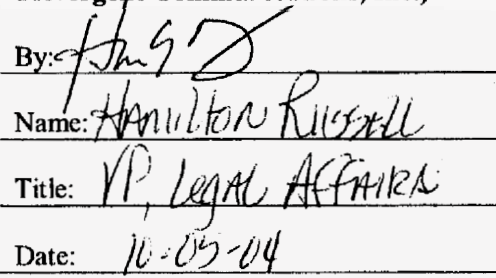 By:
Name: HAMILTON RUSSELL
Title: VP, LEGAL AFFAIRS
Date: 10-05-04